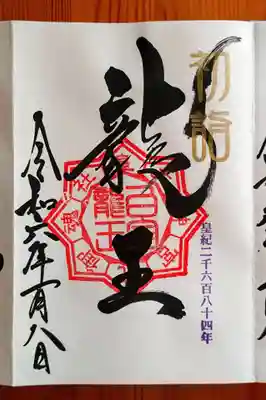 初詣
皇紀二千六百八十四年
龍王
龍王
令和六年一月八日